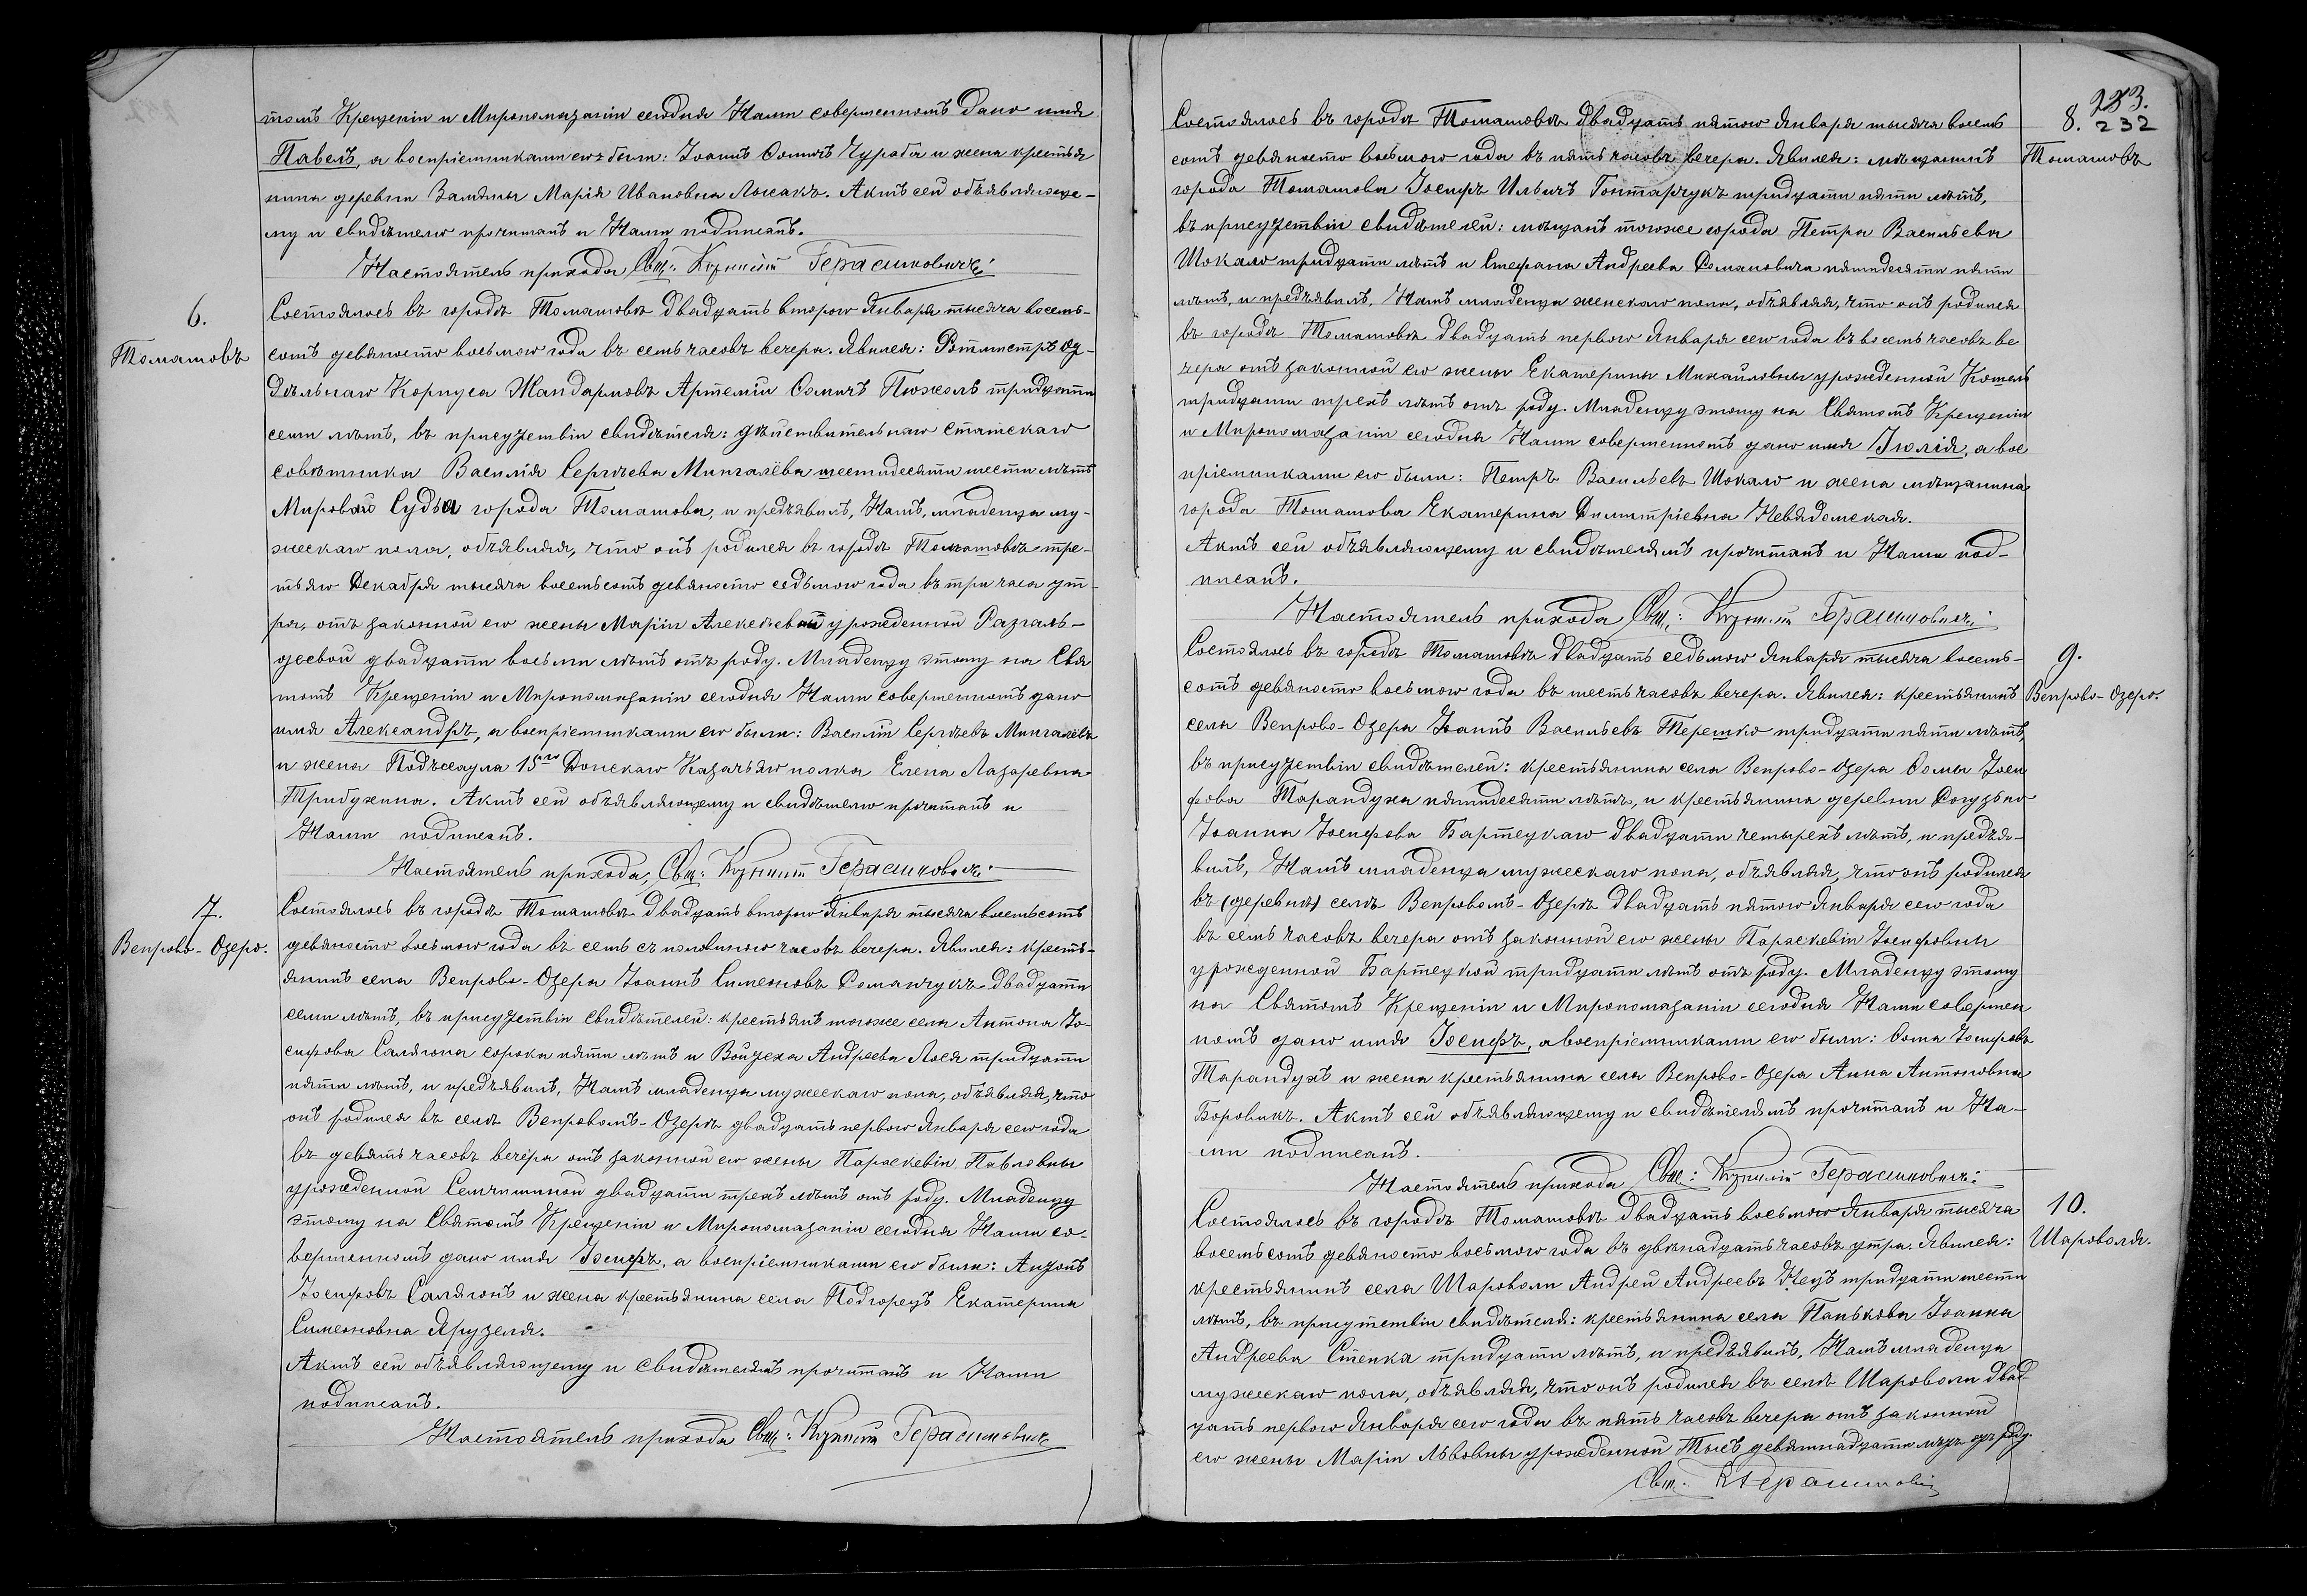 томъ Крещеніи и Мѵропомазаніи сегодня Нами совершенномъ дано имя
Павелъ, а воспріемниками его были: Іоаннъ Ѳоминъ Чураба и жена крестья
нина деревни Замяны Марія Ивановна Лысакъ. Актъ сей объявляюще-
му и свидѣтелю прочитанъ и Нами подписанъ.
Настоятель прихода Свщ: Герасимовичъ
6.
Томашовъ
Состоялось въ городѣ Томашовѣ двадцать второго Января тысяча восемь-
сотъ девяносто восьмого года въ семь часовъ вечера. Явился: Ротмистръ От-
дѣльнаго Корпуса Жандармовъ Артемій Ѳомичъ Пюжоль тридцати
семи лѣтъ, въ присутствіи свидѣтеля: дѣйствительнаго статскаго
совѣтника Василія Сергѣева Мингалёва шестидесяти шести лѣтъ
Мировой Судьа города Томашова, и предъявилъ, Намъ, младенца му-
жескаго пола, объявляя, что онъ родился въ городѣ Томашовѣ тре-
тьяго Декабря тысяча восемьсотъ девяносто седьмого года въ три часа ут-
ра, отъ законной его жены Маріи Алексѣевной урожденной Разгаль-
цевой двадцати восьми лѣтъ отъ роду. Младенцу этому на Свя
томъ Крещеніи и Мѵропомазаніи сегодня Нами совершенномъ дано
имя Александръ, а воспріемниками его были: Василій Сергѣевъ Мингалевъ
и жена Подъесаула 15го Донскаго Казачьяго полка Елена Лазаревна
Трибухина. Актъ сей объявляющему и свидѣтелю прочитанъ и
Нами подписанъ.
Настоятель прихода, Свщ: Герасимовичъ
7.
Вепрово-Озеро.
Состоялось въ городѣ Томашовѣ двадцать второго Января тысяча восемьсотъ
девяносто восьмого года въ семь съ половиною часовъ вечера. Явился: кресть-
янинъ села Вепрово-Озера Іоаннъ Симеоновъ Романчукъ двадцати
семи лѣтъ, въ присутствіи свидѣтелей: крестьянъ тогоже села Антона Іо-
сифова Салягона сорока пяти лѣтъ и Войцеха Андреева Лося тридцати
пяти лѣтъ, и предъявилъ, Намъ младенца мужескаго пола, объявляя, что
онъ родился въ селѣ Вепровомъ-Озерѣ двадцать первого Января сего года
въ девять часовъ вечера отъ законной его жены Параскевіи Павловны
урожденной Семчишиной двадцати трехъ лѣтъ отъ роду. Младенцу
этому на Святомъ Крещеніи и Мѵропомазаніи сегодня Нами со-
вершенномъ дано имя Іосифъ, а воспріемниками его были: Антонъ
Іосифовъ Салягонъ и жена крестьянина села Подгорецъ Екатерина
Симеоновна Друзеля.
Актъ сей объявляющему и свидѣтелямъ прочитанъ и Нами
подписанъ.
Настоятель прихода Свщ: Герасимовичъ
233.
8. 232
Томашовъ
Состоялось въ городѣ Томашовѣ двадцать пятого Января тысяча восемь
сотъ девяносто восьмого года въ пять часовъ вечера. Явился: мѣщанинъ
города Томашова Іосифъ Ильичъ Гонтарчукъ тридцати пяти лѣтъ,
въ присутствіи свидѣтелей: мѣщанъ тогоже города Петра Васильева
Шокало тридцати лѣтъ и Стефана Андреева Романовича пятидесяти пяти
лѣтъ, и предъявилъ, Намъ младенца женскаго пола, объявляя, что онъ родился
въ городѣ Томашовѣ двадцать первого Января сего года въ восемь часовъ ве
чера отъ законной его жены Екатерины Михайловны урожденной Комель
тридцати трехъ лѣтъ отъ роду. Младенцу этому на Святомъ Крещеніи
и Мѵропомазаніи сегодня Нами совершенномъ дано имя Юлія, а вос
пріемниками его были: Петръ Васильевъ Шокало и жена мѣщанина
города Томашова Екатерина Димитріевна Невядомская.
Актъ сей объявляющему и свидѣтелямъ прочитанъ и Нами под-
писанъ.
Настоятель прихода Свщ: Герасимовичъ
9.
Вепрово-Озеро.
Состоялось въ городѣ Томашовѣ двадцать седьмого Января тысяча восемь-
сотъ девяносто восьмого года въ шесть часовъ вечера. Явился: крестьянинъ
села Вепрово-Озера Іоаннъ Васильевъ Терешко тридцати пяти лѣтъ,
въ присутствіи свидѣтелей: крестьянина села Вепрово-Озера Ѳомы Іоси
фова Тарандуха пятидесяти лѣтъ, и крестьянина деревни
Іоанна Іосифова Бартецкаго двадцати четырехъ лѣтъ, и предъя-
вилъ, Намъ младенца мужескаго пола, объявляя, что онъ родился
въ (деревнѣ) селѣ Вепровомъ-Озерѣ двадцать пятого Января сего года
въ семь часовъ вечера отъ законной его жены Параскевіи Іосифовны
урожденной Бартецкой тридцати лѣтъ отъ роду. Младенцу этому
на Святомъ Крещеніи и Мѵропомазаніи сегодня Нами совершен
номъ дано имя Іосифъ, а воспріемниками его были: Ѳома Іосифовъ
Тарандухъ и жена крестьянина села Вепрово-Озера Анна Антоновна
Боровикъ. Актъ сей объявляющему и свидѣтелямъ прочитанъ и На-
ми подписанъ.
Настоятель прихода Свщ: Герасимовичъ
10.
Шароволя.
Состоялось въ городѣ Томашовѣ двадцать восьмого Января тысяча
восемьсотъ девяносто восьмого года въ двѣнадцать часовъ утра. Явился:
крестьянинъ села Шароволи Андрей Андреевъ Кецъ тридцати шести
лѣтъ, въ присутствіи свидѣтеля: крестьянина села Панькова Іоанна
Андреева Стенка тридцати лѣтъ, и предъявилъ, Намъ младенца
мужескаго пола, объявляя, что онъ родился въ селѣ Шароволи двад-
цать первого Января сего года въ пять часовъ вечера отъ законной
его жены Маріи Львовны урожденной Тысъ девятнадцати лѣтъ отъ роду.
Свщ. КГерасимовичъ